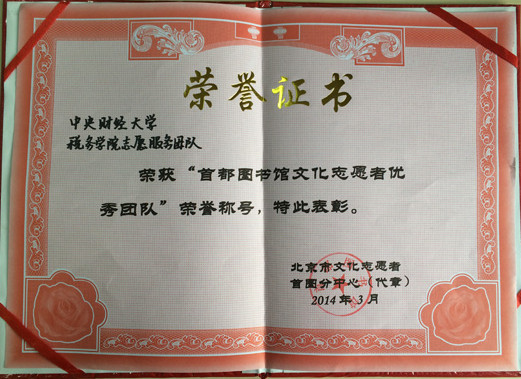 荣誉证书
中央财经大学
税务学院志愿服务团队
荣获“首都图书馆文化志愿者优
秀团队”荣誉称号，特此表彰。
北京市文化志愿者
首图分中心（代章）
2014年3月